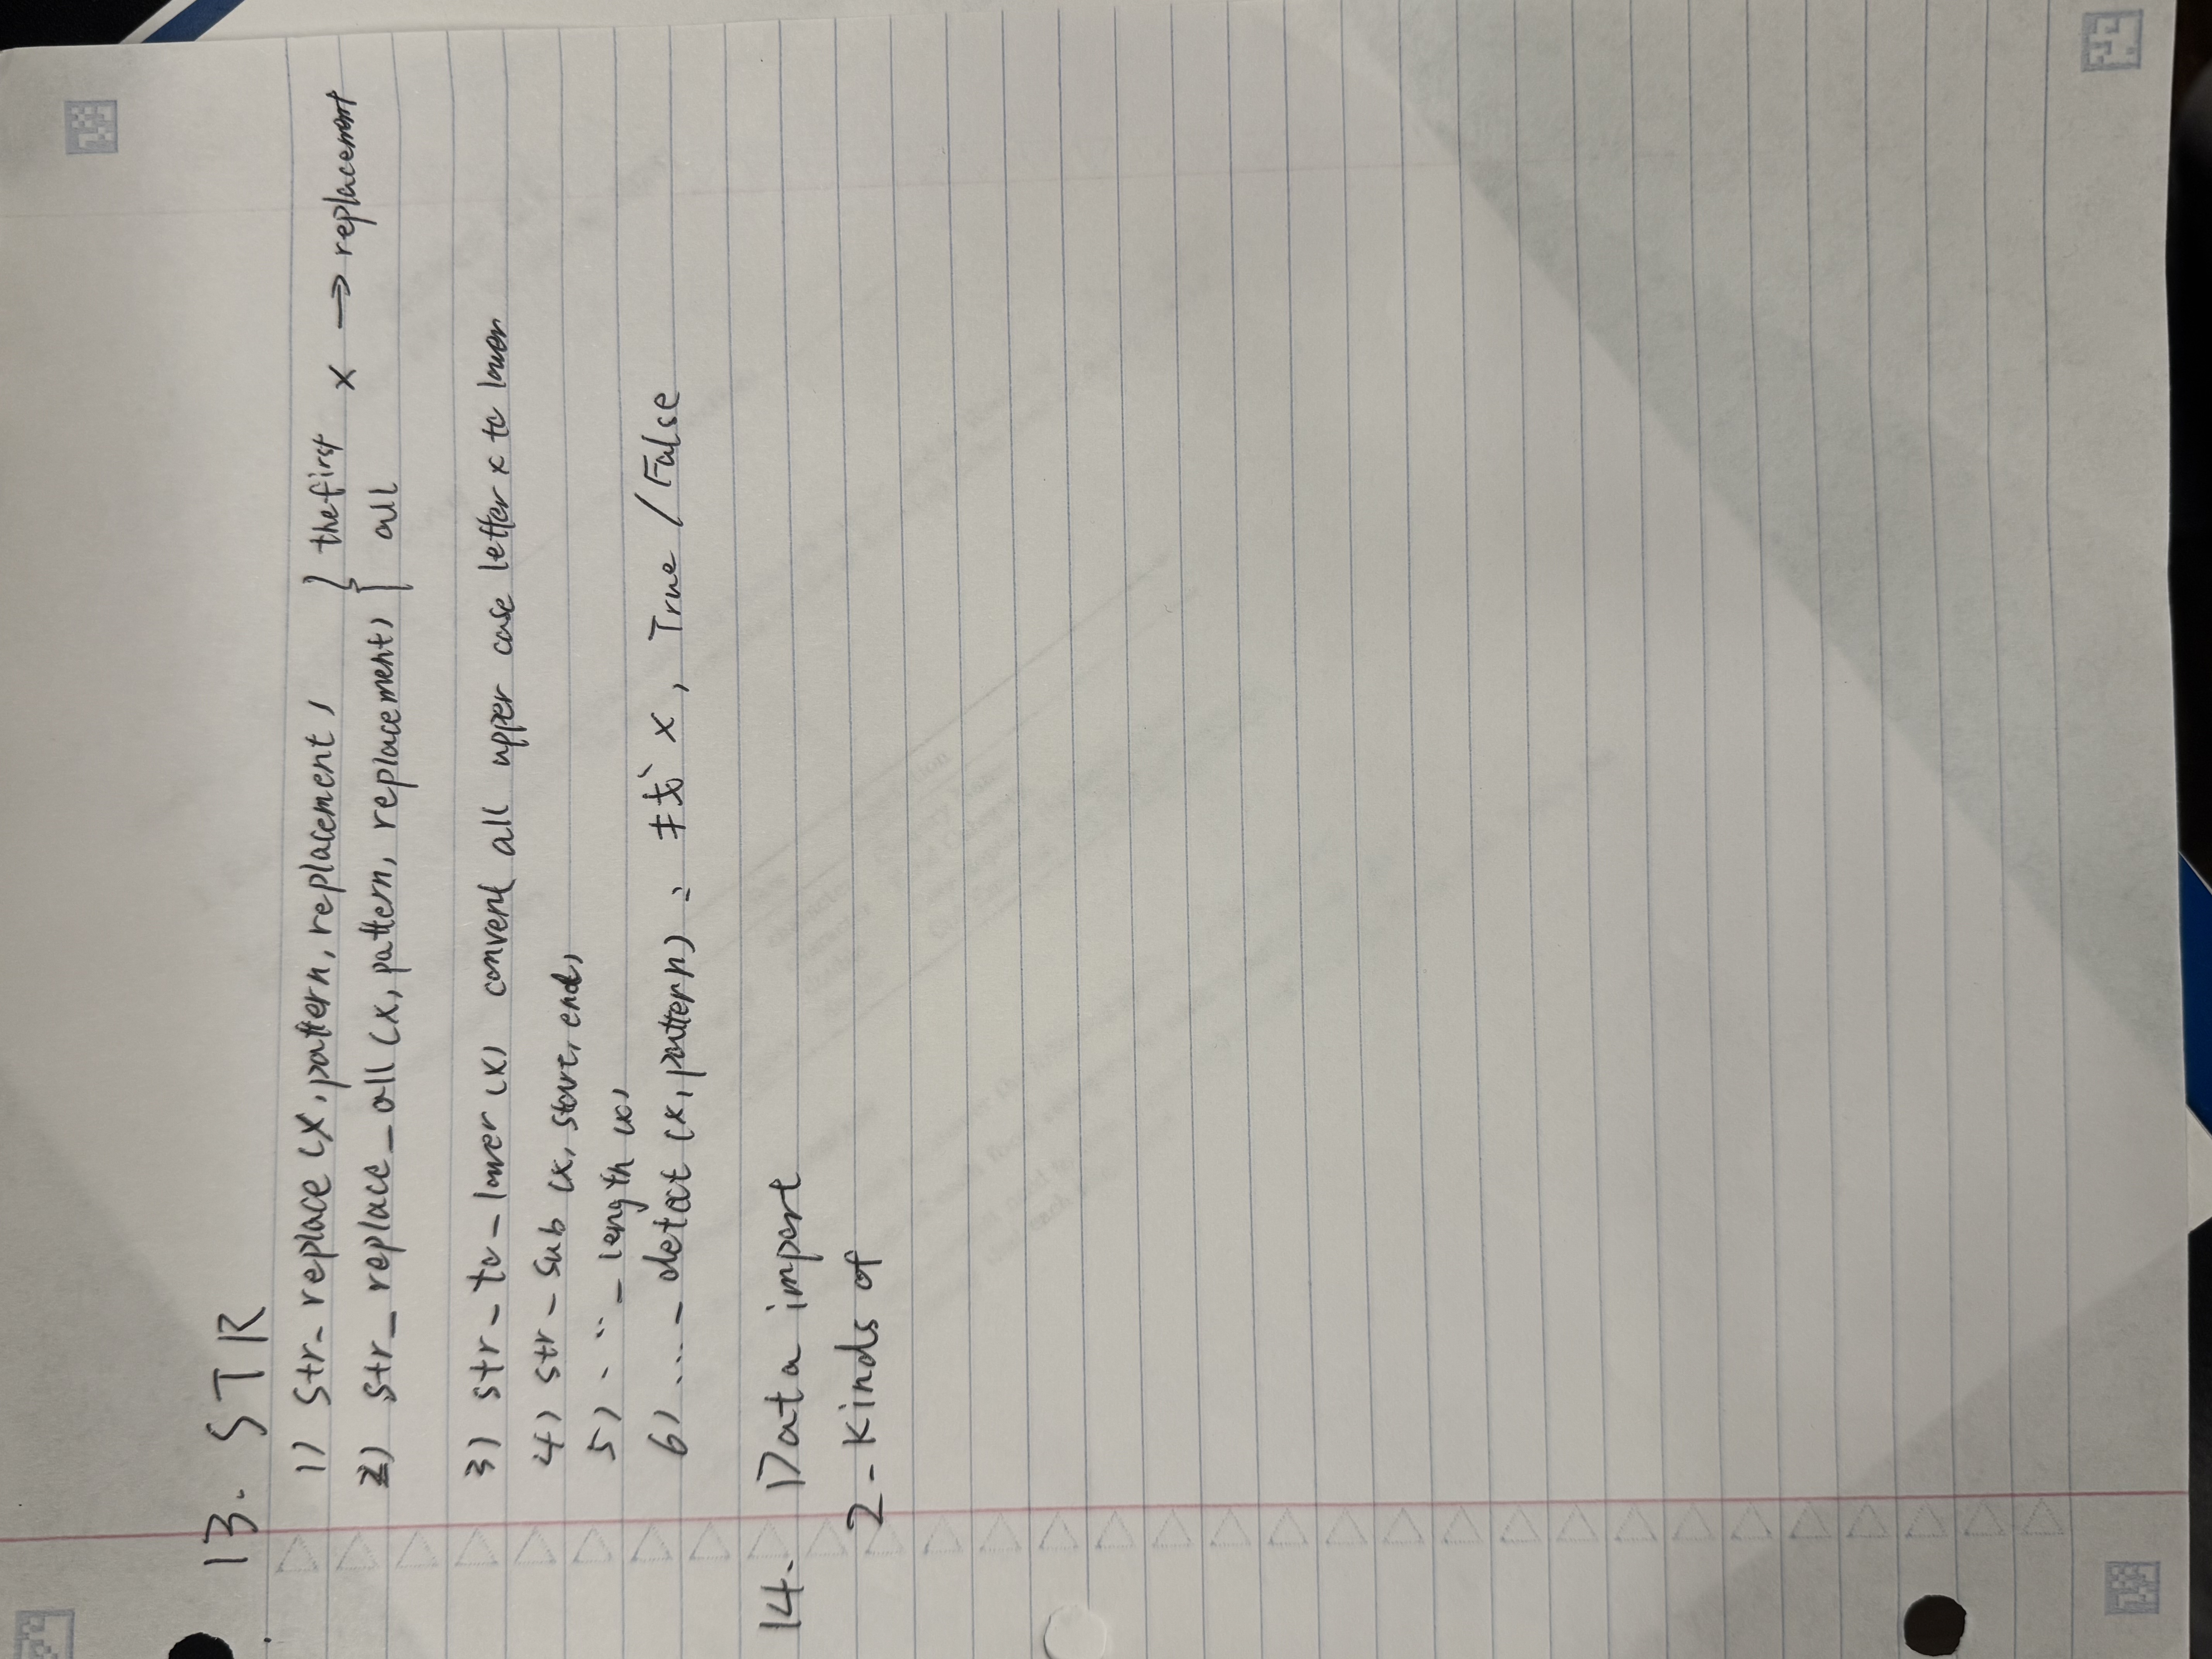 13. STR
1) str_replace (x, pattern, replacement)
2) str_replace_all (x, pattern, replacement)
} the first
all
x → replacement
3) str_to_lower (x) convent all upper case letter x to lower
4) str_sub (x, start, end)
5) ..._length (x)
6) ..._detect (x, pattern) : 找 x, True / False
14. Data import
2-Kinds of